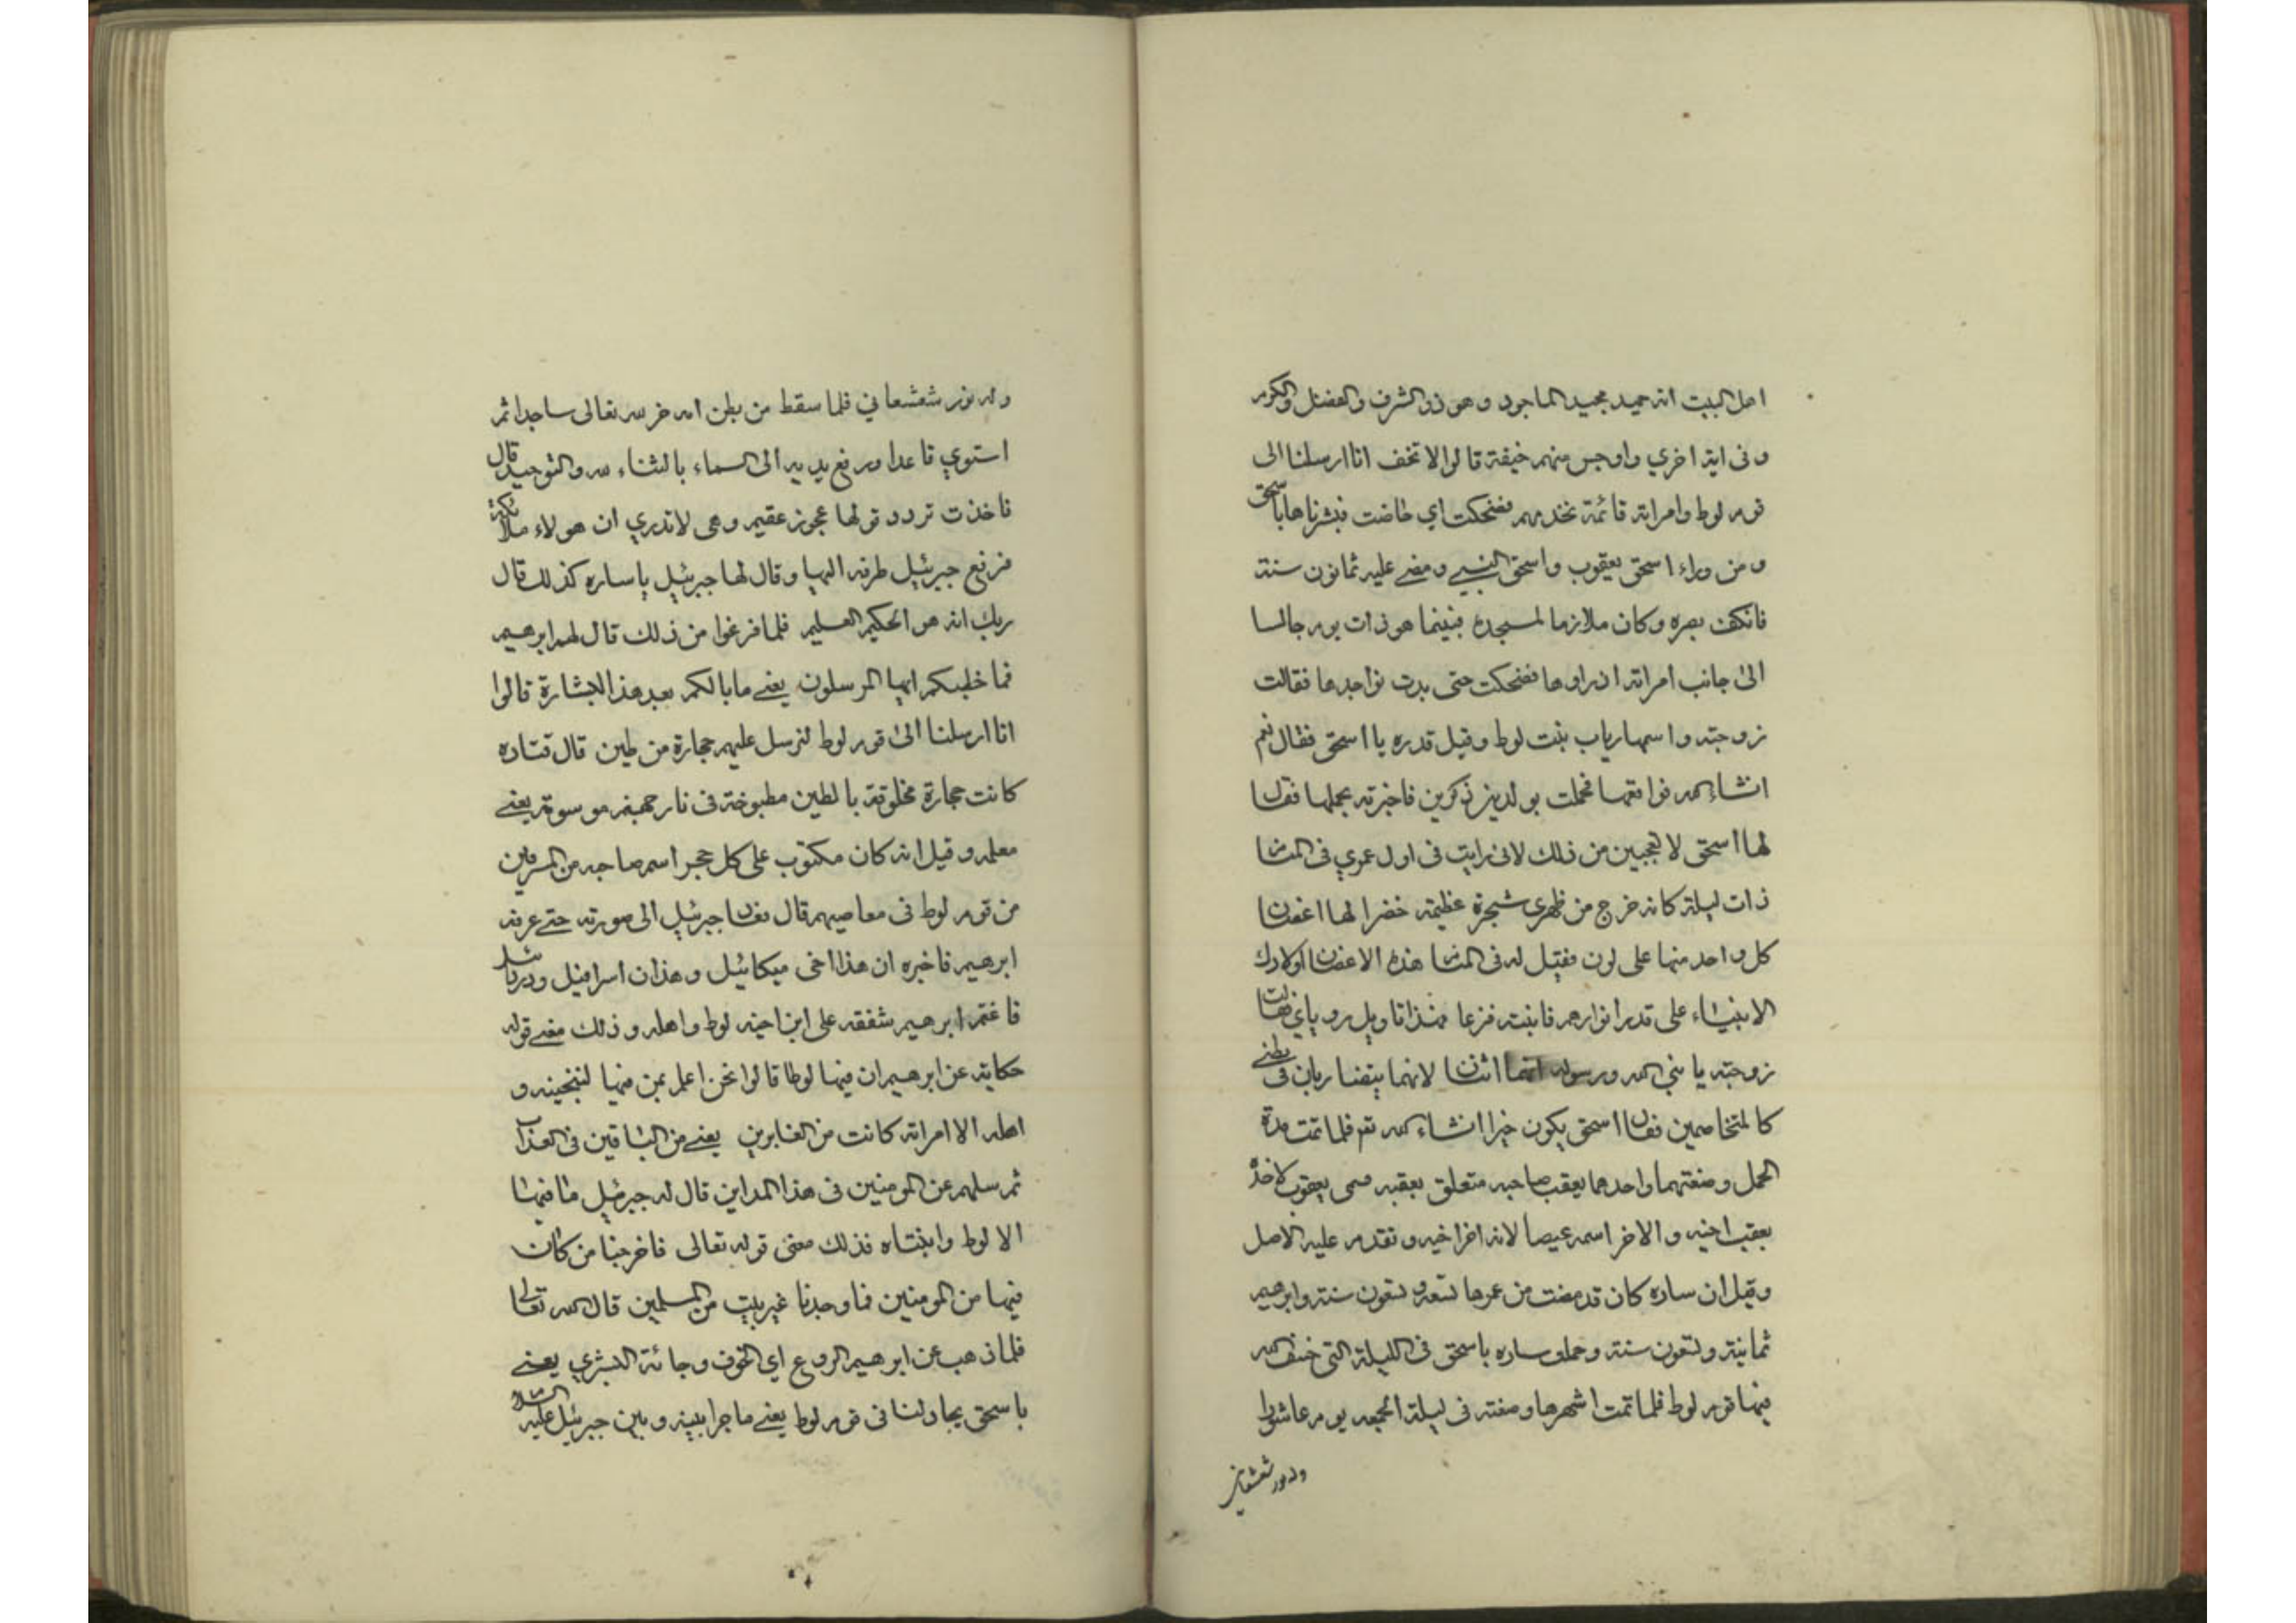 اهل البيت انه حميد مجيد الماجود وهو ذو الشرف والفضل والكرم
وفى اية اخري واوجس منهم خيفة قالوا لا تخف انا ارسلنا الى
قوم لوط وامراته قائمة تخدمهم فضحكت اي حاضت فبشرناها باسحق
ومن وراء اسحق يعقوب واسحق النبي ومضى عليه ثمانون سنة
فانكف بصره وكان ملازما لمسجده فبينما هو ذات يوم جالسا
الى جانب امراته اذ راودها فضحكت حتى بدت نواجدها فقالت
زوجته واسمها رباب بنت لوط وقيل قدره يا اسحق فقال نعم
انشاء الله فواقعها فحملت بولدين ذكرين فاخبرته بحملها فقال
لها اسحق لا تعجبين من ذلك لانى رايت فى اول عمري فى المنام
ذات ليلة كانه خرج من ظهرى شجرة عظيمة خضرا لها اغصان
كل واحد منها على لون فقيل له فى المنام هذه الاغصان اولادك
الانبياء على قدر انوارهم فانبته فزعا فهذا تاويل روياي فقالت
زوجته يا نبي الله ورسوله انهما اثنان لانهما يتضاربان فى بطني
كالمتخاصمين فقال اسحق يكون خيرا انشاء الله تعم فلما تمت مدة
الحمل وضعتهما واحدهما يعقب صاحبه متعلق بعقبه فسمى يعقوب لاخذه
بعقب اخيه والاخر اسمه عيصا لانه اخر اخيه وتقدم عليه الاصل
وقيل ان ساره كان قد مضت من عمرها تسعه وتسعون سنة وابرهيم
ثمانية وتسعون سنة وحملت ساره باسحق فى الليلة التى خسف الله
فيها قوم لوط فلما تمت اشهرها وضعته فى ليلة الجمعه يوم عاشورا
وله نور شعشعاني
وله نور شعشعاني فلما سقط من بطن امه خر لله تعالى ساجدا ثم
استوي قاعدا ورفع يديه الى السماء بالثناء لله والتوحيد قال
فاخذت تردد قولها عجوز عقيم وهى لا تدري ان هولاء ملائكة
فرفع جبرئيل طرفه اليها وقال لها جبرئيل يا ساره كذلك قال
ربك انه هو الحكيم العليم فلما فرغوا من ذلك قال لهم ابرهيم
فما خطبكم ايها المرسلون يعني ما بالكم بعد هذا البشارة قالوا
انا ارسلنا الى قوم لوط لنرسل عليهم حجارة من طين قال قتاده
كانت حجارة مخلوقة بالطين مطبوخة فى نار جهنم موسومة يعني
معلمه وقيل انه كان مكتوب على كل حجر اسم صاحبه من المسرفين
من قوم لوط فى معاصيهم قال فعاد جبرئيل الى صورته حتى عرفه
ابرهيم فاخبره ان هذا اخى ميكائيل وهذان اسرافيل ودردائيل
فاغتم ابرهيم شفقه على ابن اخيه لوط واهله وذلك معنى قوله
حكاية عن ابرهيم ان فيها لوطا قالوا نحن اعلم بمن فيها لننجينه و
اهله الا امراته كانت من الغابرين يعني من الباقين فى العذاب
ثم سلهم عن المومنين فى هذا المداين قال له جبرئيل ما فيها
الا لوط وابنتاه فذلك معنى قوله تعالى فاخرجنا من كان
فيها من المومنين فما وجدنا غير بيت من المسلمين قال الله تعالى
فلما ذهب عن ابرهيم الروع اي الخوف وجائة البشري يعني
باسحق يجادلنا فى قوم لوط يعني ما جرا بينه وبين جبرئيل عليه السلام